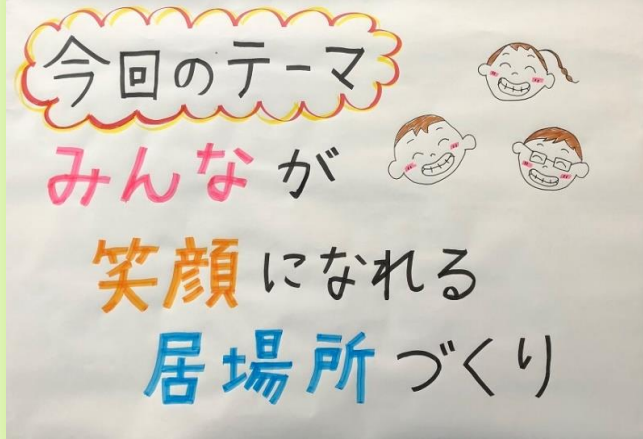 今回のテーマ
みんなが
笑顔になれる
居場所づくり